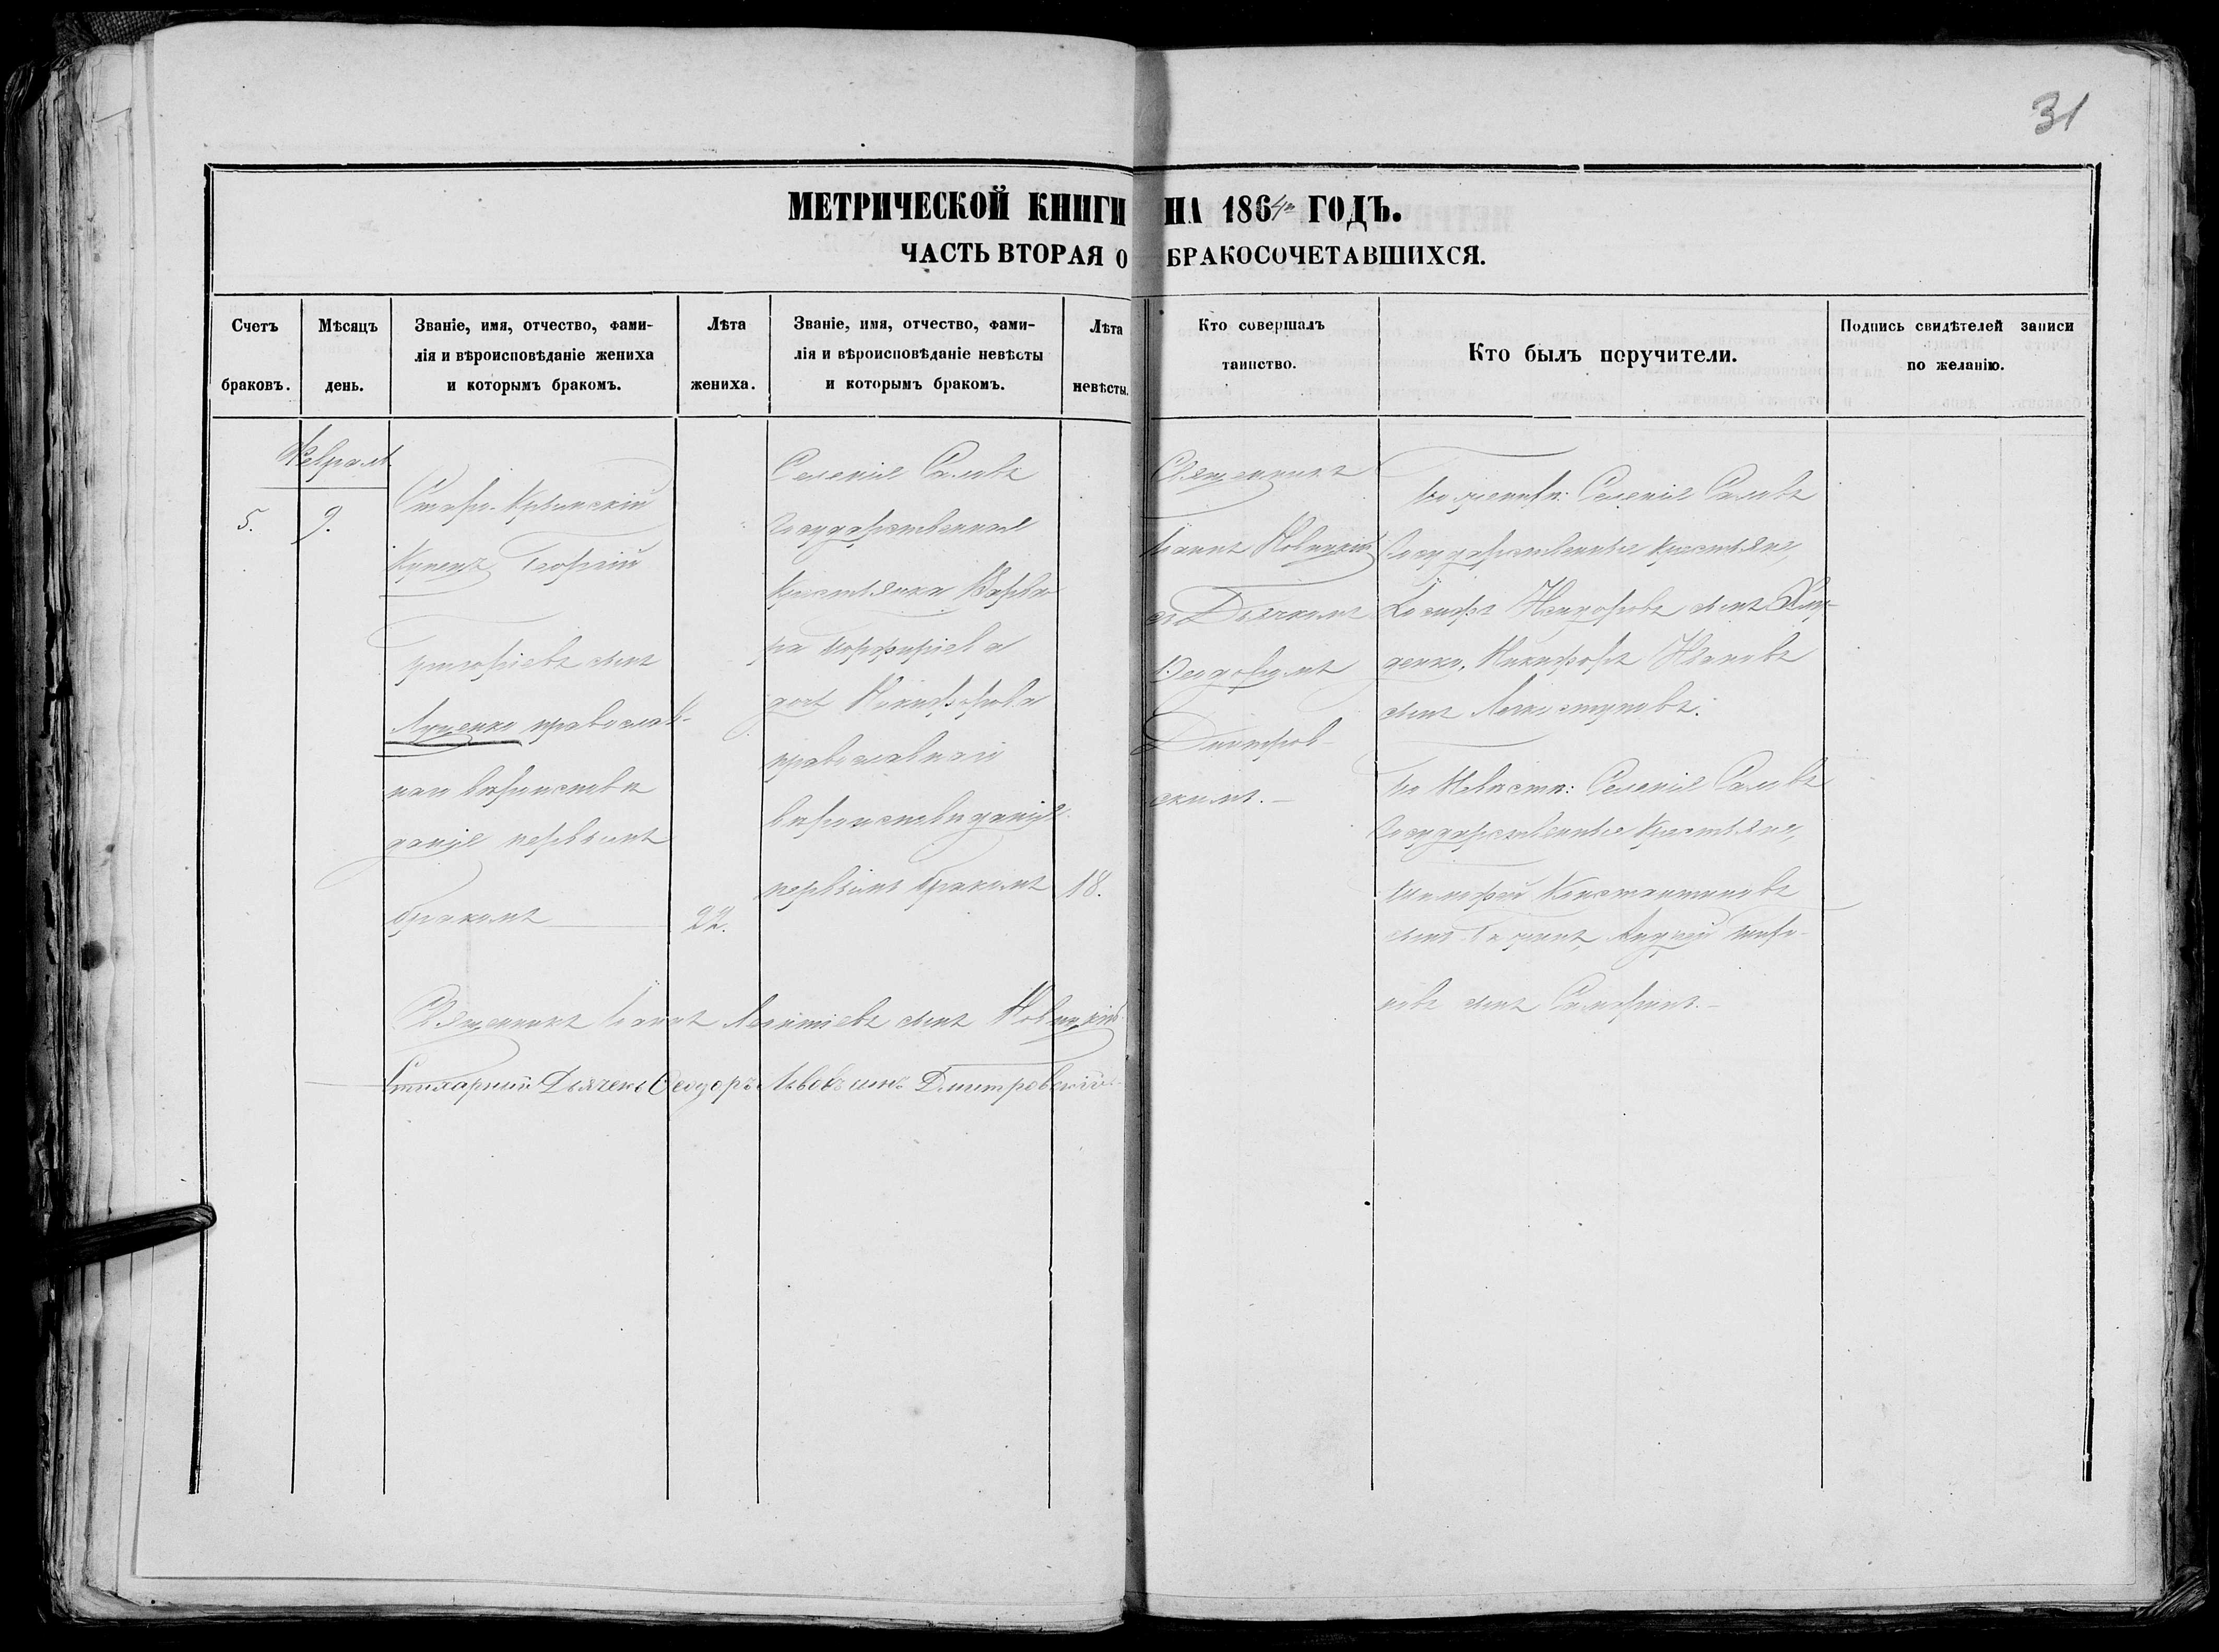 31
МЕТРИЧЕСКОЙ КНИГИ НА 1864й ГОДЪ.
ЧАСТЬ ВТОРАЯ О БРАКОСОЧЕТАВШИХСЯ.
Счетъ
браковъ.
Мѣсяцъ
день.
Званіе, имя, отчество, фами-
лія и вѣроисповѣданіе жениха
и которымъ бракомъ.
Лѣта
жениха.
Званіе, имя, отчество, фами-
лія и вѣроисповѣданіе невѣсты
и которымъ бракомъ.
Лѣта
невѣсты.
Кто совершалъ
таинство.
Кто былъ поручители.
Подпись свидѣтелей записи
по желанію.
Февраль
5.
9.
Старо-Крымскій
Купецъ Георгій
Григоріевъ сынъ
Луценко православ-
наго вѣроисповѣ
данія первымъ
бракомъ
22.
Селенія Саловъ
Государственная
Крестьянка Варва
ра Порфиріева
дочь Никифорова
православнаго
вѣроисповѣданія
первымъ бракомъ
18.
Священникъ
Іоаннъ Новицкій
съ Дьячкомъ
Феодоромъ
Дмитров-
скимъ.
По женихѣ: Селенія Саловъ
Государственные Крестьяне,
Іосифъ сынъ
денко, Никифоръ Ивановъ
сынъ
По Невѣстѣ: Селенія Саловъ
Государственные Крестьяне,
Тимофей Константиновъ
сынъ Андрей
новъ сынъ
Священникъ Іоаннъ Леонтіевъ сынъ Новицкій
Дьячекъ Феодоръ Львовъ сынъ Дмитровскій